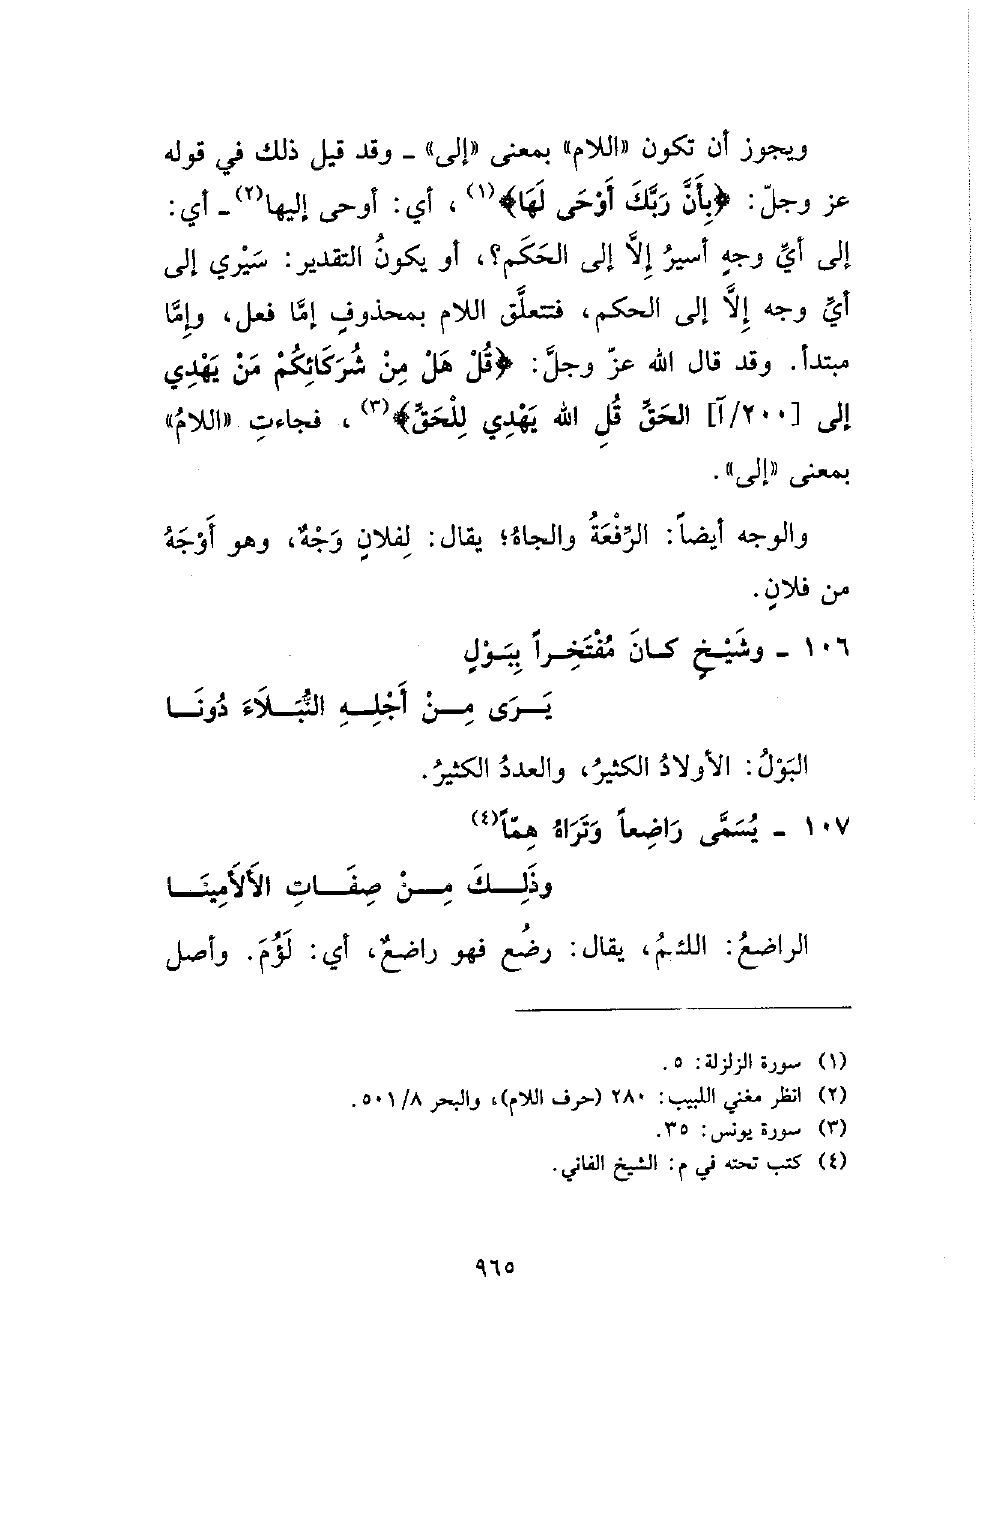 ويجوز أن تكون «اللام» بمعنى «إلى» ـ وقد قيل ذلك في قوله
عز وجلّ: ﴿بِأَنَّ رَبَّكَ أَوْحَى لَهَا﴾(١)، أي: أوحى إليها(٢)ـ أي:
إلى أيِّ وجهٍ أسيرُ إِلاَّ إلى الحَكَم؟، أو يكونُ التقدير: سَيْري إلى
أيِّ وجه إِلاَّ إلى الحكم، فتتعلَّق اللام بمحذوفٍ إمَّا فعل، وإِمَّا
مبتدأ. وقد قال الله عزّ وجلَّ: ﴿قُلْ هَلْ مِنْ شُرَكَائِكُمْ مَنْ يَهْدِي
إلى [٢٠٠/آ] الحَقِّ قُلِ الله يَهْدِي لِلْحَقِّ﴾(٣)، فجاءتِ «اللامُ»
بمعنى «إلى».
والوجه أيضاً: الرِّفْعَةُ والجاهُ؛ يقال: لِفلانٍ وَجْهٌ، وهو أَوْجَهُ
من فلانٍ.
١٠٦ ـ وشَيْخٍ كانَ مُفْتَخِراً بِبَوْلٍ
يَرَى مِنْ أَجْلِهِ النُّبَلاَءَ دُونَا
البَوْلُ: الأولادُ الكثيرُ، والعددُ الكثيرُ.
١٠٧ ـ يُسَمَّى رَاضِعاً وَتَرَاهُ هِمّاً(٤)
وذَلِكَ مِنْ صِفَاتِ الأَلأَمِينَا
الراضعُ: اللئيمُ، يقال: رضُع فهو راضعٌ، أي: لَؤُمَ. وأصل
(١) سورة الزلزلة: ٥.
(٢) انظر مغني اللبيب: ٢٨٠ (حرف اللام)، والبحر ٥٠١/٨.
(٣) سورة يونس: ٣٥.
(٤) كتب تحته في م: الشيخ الفاني.
٩٦٥